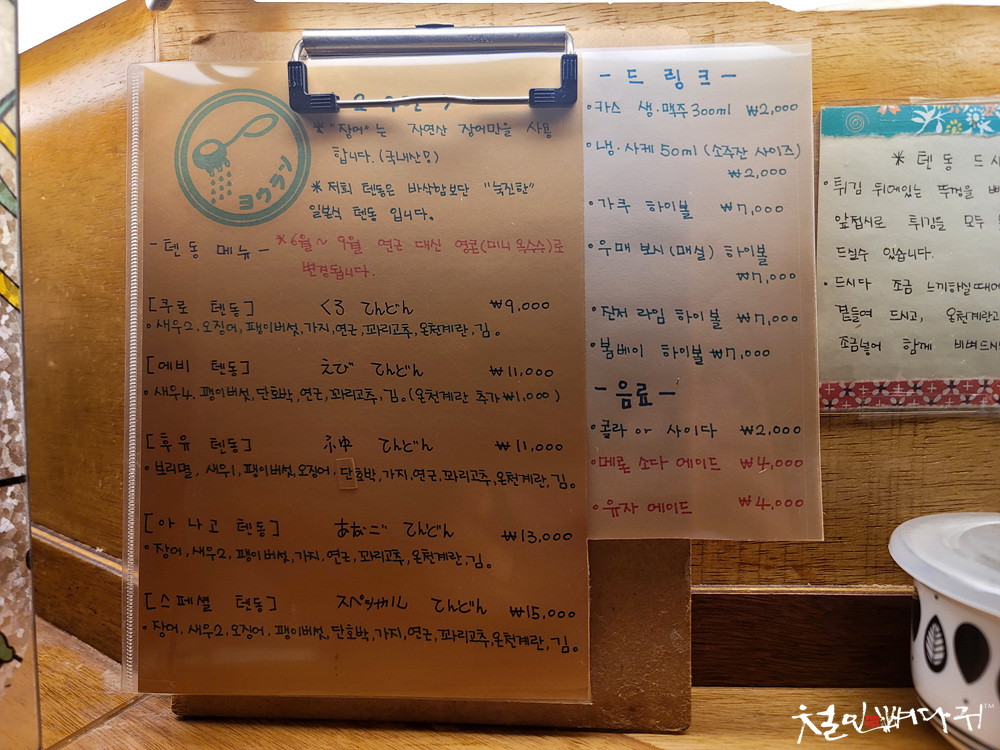 ヨクラン
* "장어"는 자연산 장어만을 사용
합니다. (국내산)
* 저희 텐동은 바삭함보단 "눅진한"
일본식 텐동 입니다.
- 텐동 메뉴 - * 6월 ~ 9월 연근 대신 영콘(미니 옥수수)로
변경됩니다.
[쿠로 텐동] くろ てんどん ₩9,000
· 새우2, 오징어, 팽이버섯, 가지, 연근, 꽈리고추, 온천계란, 김。
[에비 텐동] えび てんどん ₩11,000
· 새우4, 팽이버섯, 단호박, 연근, 꽈리고추, 김。(온천계란 추가 ₩1,000)
[후유 텐동] てんどん ₩11,000
· 보리멸, 새우1, 팽이버섯, 오징어, 단호박, 가지, 연근, 꽈리고추, 온천계란, 김。
[아나고 텐동] あなご てんどん ₩13,000
· 장어, 새우2, 팽이버섯, 가지, 연근, 꽈리고추, 온천계란, 김。
[스페셜 텐동] スペシャル てんどん ₩15,000
· 장어, 새우2, 오징어, 팽이버섯, 단호박, 가지, 연근, 꽈리고추, 온천계란, 김。
- 드링크 -
· 카스 생.맥주 300ml ₩2,000
· 냉.사케 50ml (소주잔 사이즈)
₩2,000
· 가쿠 하이볼 ₩7,000
· 우메 보시(매실) 하이볼
₩7,000
· 진저 라임 하이볼 ₩7,000
· 봄베이 하이볼 ₩7,000
- 음료 -
· 콜라 or 사이다 ₩2,000
· 메론 소다 에이드 ₩4,000
· 유자 에이드 ₩4,000
* 텐동 드시
· 튀김 뒤에있는 뚜껑을
앞접시로 튀김을 모두
드실수 있습니다.
· 드시다 조금 느끼하실때에
곁들여 드시고, 온천계란
조금넣어 함께 비벼드시
철민뼈다귀™